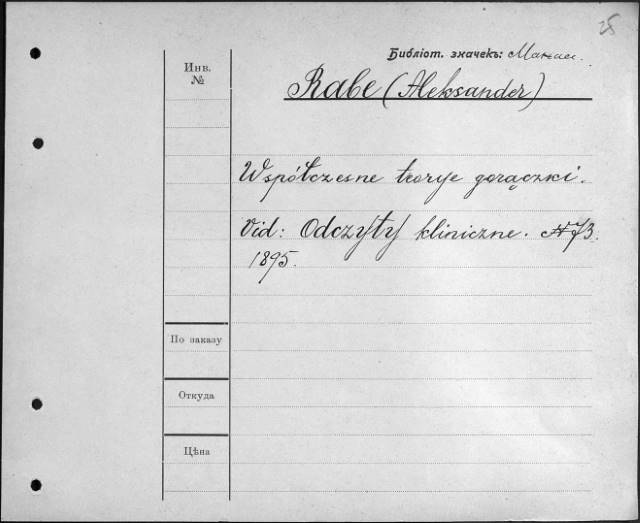 25
Библіот. значекъ:
Инв.
№
Rabe (Aleksander)
Współczesne teorye gorączki.
Vid: Odczyty kliniczne. № 73.
1895.
По заказу
Откуда
Цѣна